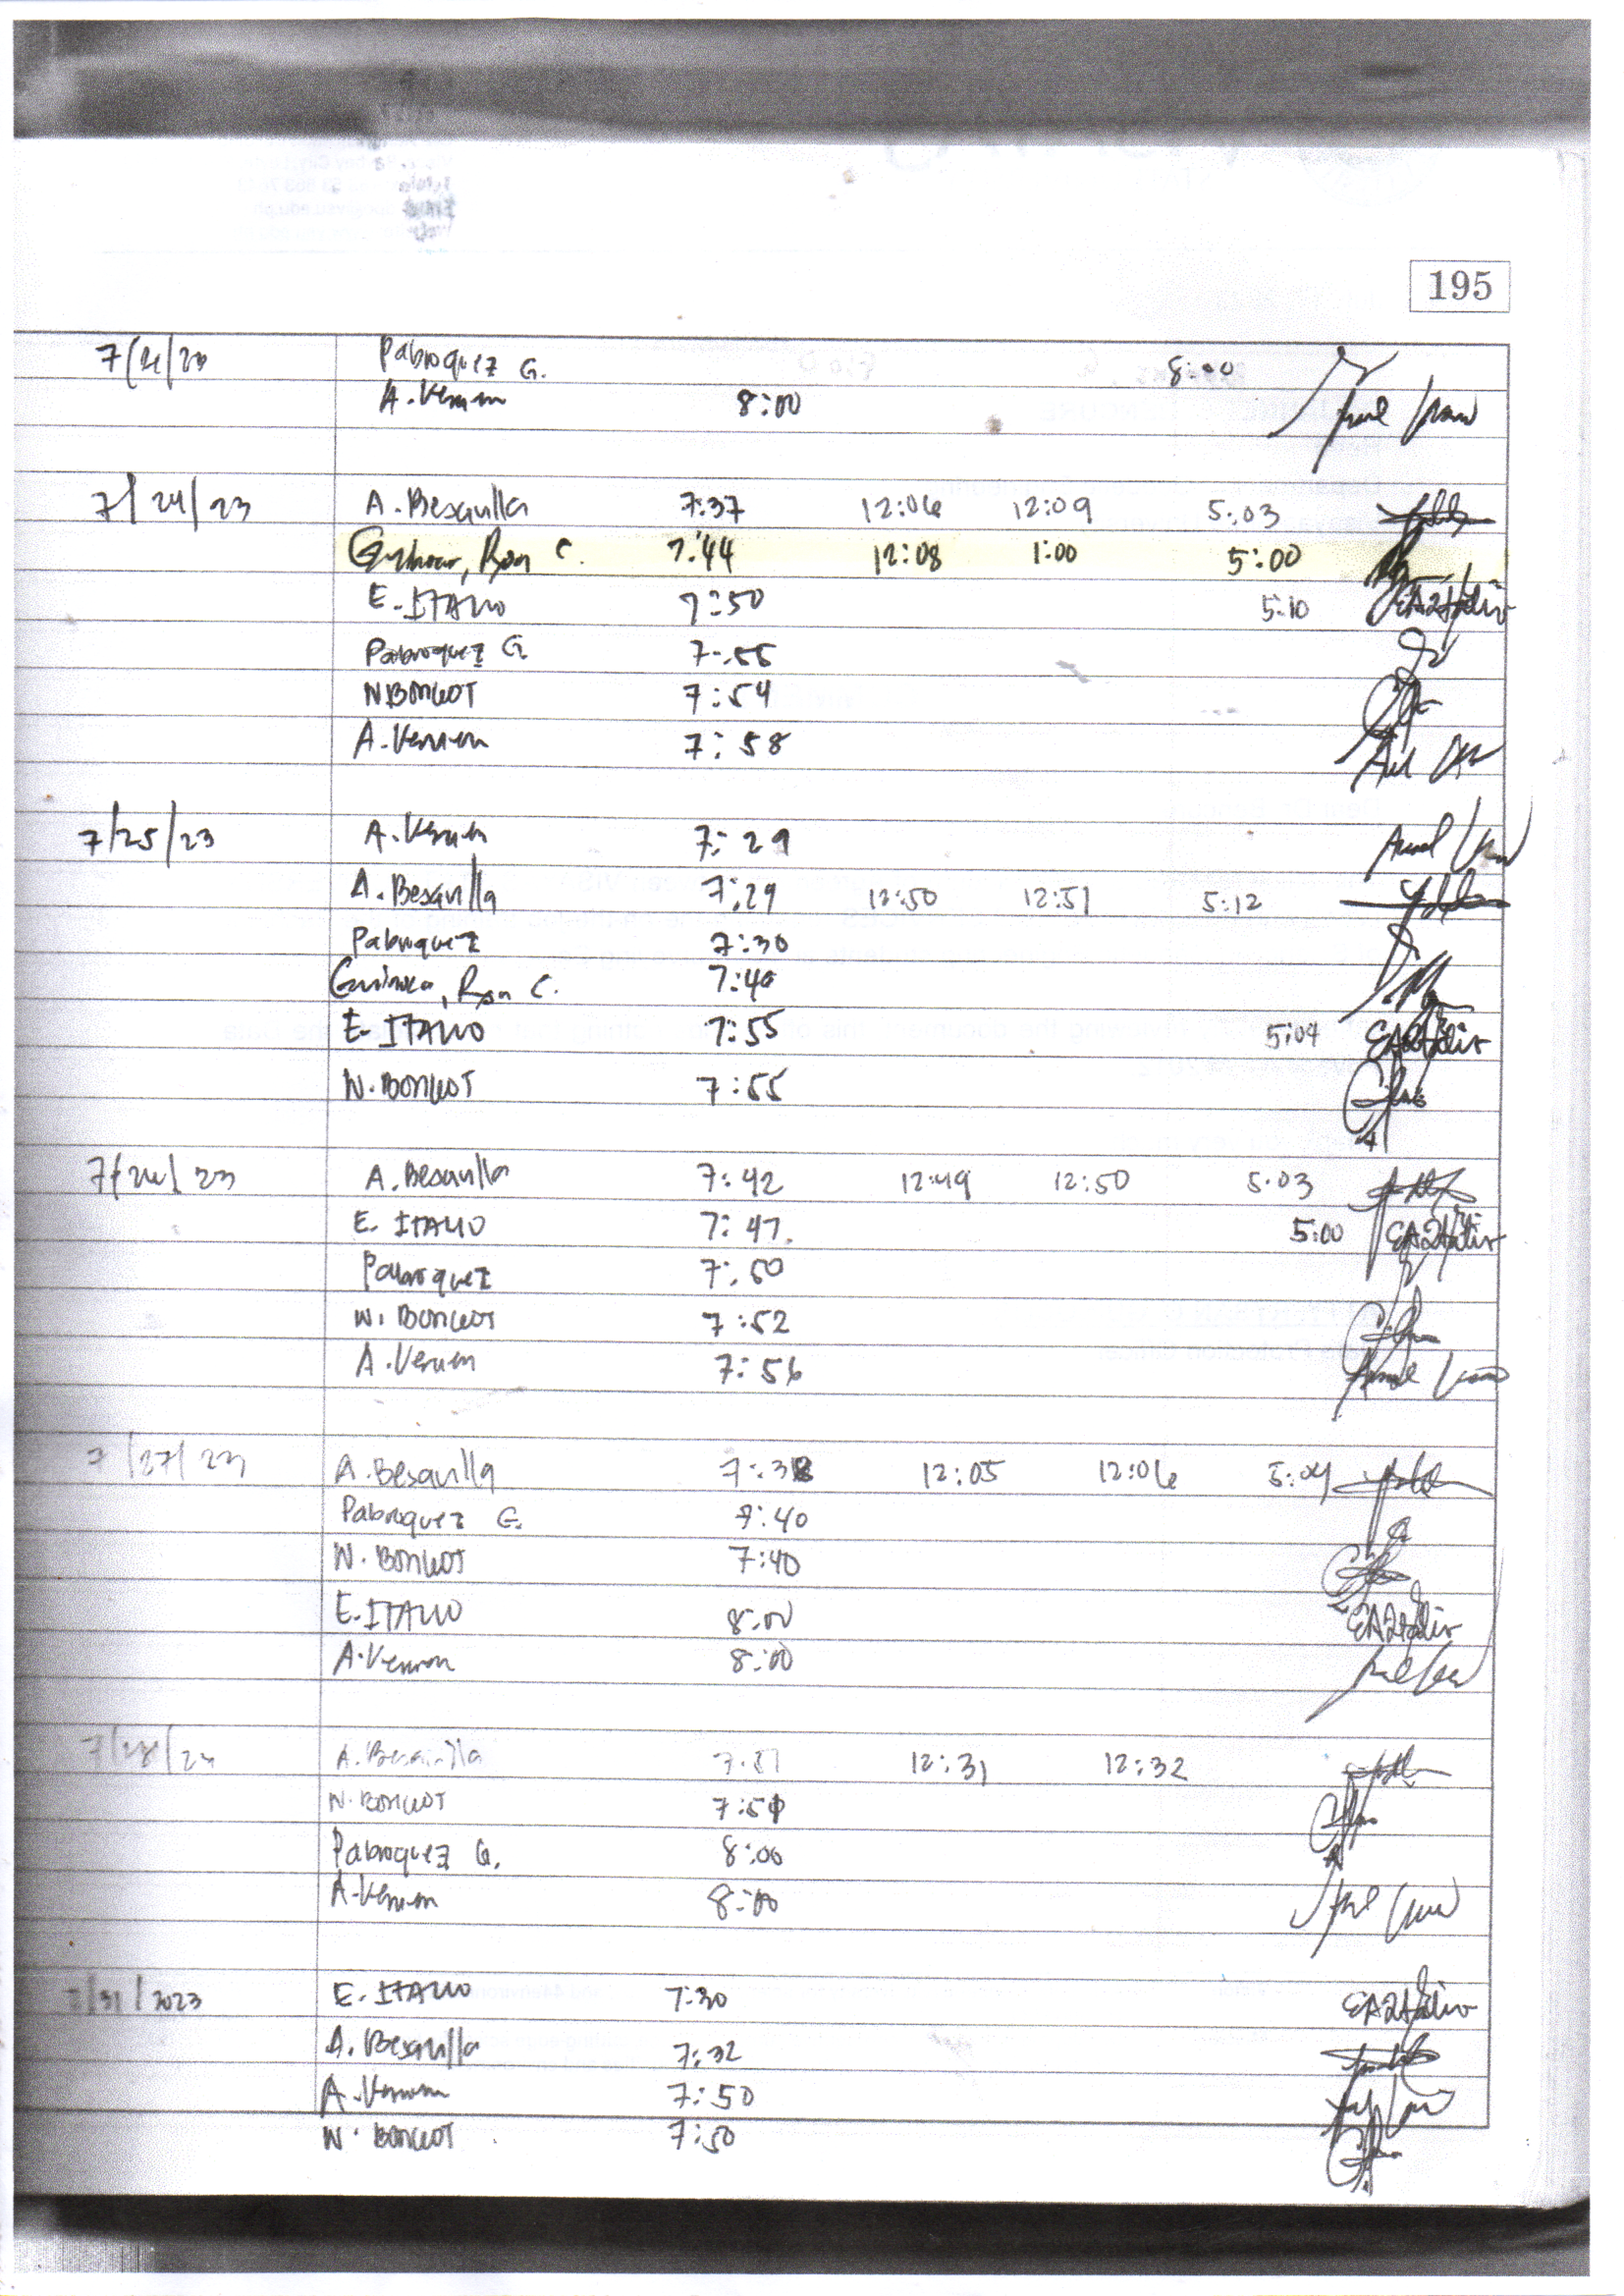 195
Pabroquez G. 8:00
A. Verum 8:00
7/24/23 A. Besavilla 7:37 12:06 12:09 5:03
C. 7:44 12:08 1:00 5:00
E. ITALIO 7:50 5:10 EA2talio
Pabroquez G 7:55
N BONGOT 7:54
A. Verum 7:58
7/25/23 A. Verum 7:29
A. Besavilla 7:29 12:50 12:51 5:12
Pabroquez 7:30
C. 7:40
E. ITALIO 7:55 5:04 EA2talio
N. BONGOT 7:55
7/26/23 A. Besavilla 7:42 12:49 12:50 5:03
E. ITALIO 7:47 5:00 EA2talio
Pabroquez 7:50
N. BONGOT 7:52
A. Verum 7:56
7/27/23 A. Besavilla 7:38 12:05 12:06 5:04
Pabroquez G. 7:40
N. BONGOT 7:40
E. ITALIO 8:00 EA2talio
A. Verum 8:00
7/28/23 A. Besavilla 12:31 12:32
N. BONGOT
Pabroquez G. 8:00
A. Verum 8:00
7/31/2023 E. ITALIO 7:30 EA2talio
A. Besavilla 7:32
A. Verum 7:50
N. BONGOT 7:50